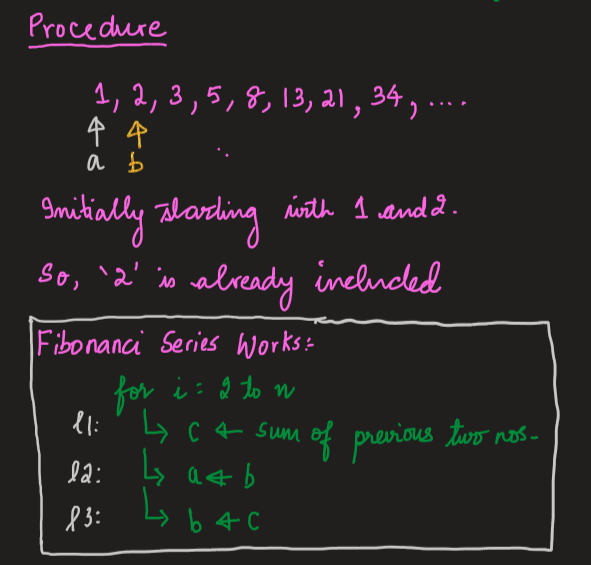 Procedure
1, 2, 3, 5, 8, 13, 21, 34, ....
a b
Initially starting with 1 and 2.
So, '2' is already included
Fibonanci Series Works:-
for i = 2 to n
l1: ↳ c ← sum of previous two nos-
l2: ↳ a ← b
l3: ↳ b ← c